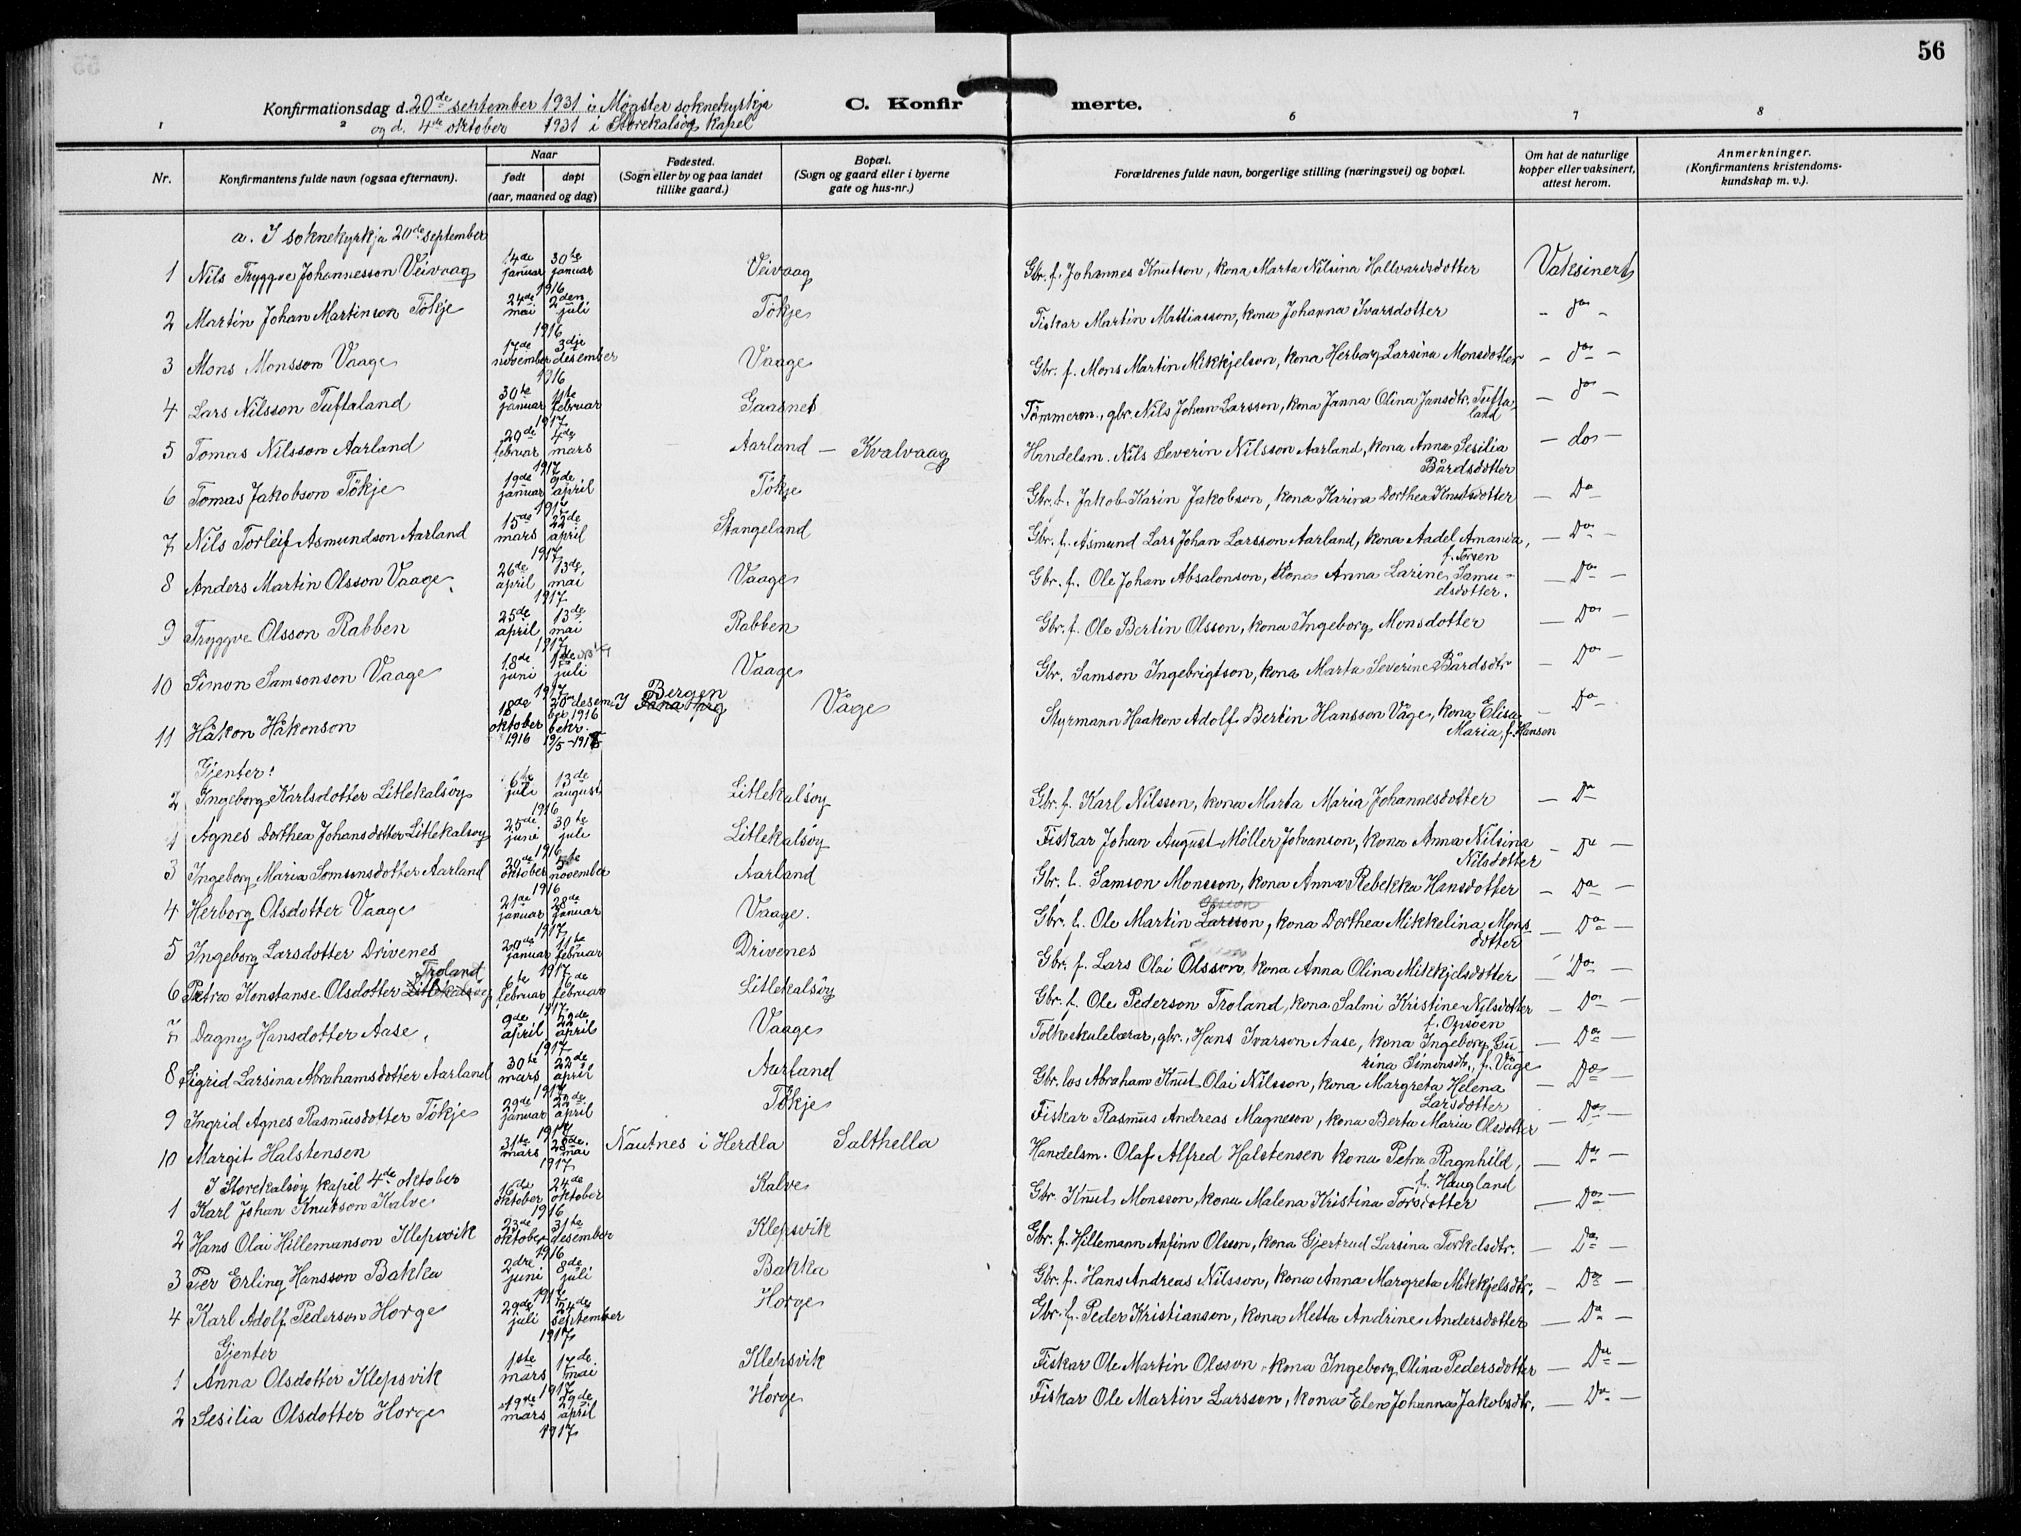 56
Konfirmationsdag d. 20de september 1931 i Møgster soknekyrkja
og d. 4de oktober 1931 i Storekalsøy kapel
C. Konfirmerte.
1 2 6 7 8
Nr. Konfirmantens fulde navn (ogsaa efternavn). Naar født døpt (aar, maaned og dag) Fødested. (Sogn eller by og paa landet tillike gaard.) Bopæl. (Sogn og gaard eller i byerne gate og hus-nr.) Forældrenes fulde navn, borgerlige stilling (næringsvei) og bopæl. Om hat de naturlige kopper eller vaksinert, attest herom. Anmerkninger. (Konfirmantens kristendoms-kundskap m. v.).
a. I soknekyrkja 20de september
1 Nils Tryggve Johannesson Veivaag 14de januar 30te januar 1916 Veivaag Gbr. f. Johannes Knutson, kona Marta Nilsina Hallvardsdotter Vaksinert
2 Martin Johan Martinson Tøkje 24de mai 2den juli 1916 Tøkje Fiskar Martin Mattiasson, kona Johanna Ivarsdotter - do -
3 Mons Monsson Vaage 17de november 3dje desember 1916 Vaage Gbr. f. Mons Martin Mikkjelson, kona Herborg Larsina Monsdotter - do -
4 Lars Nilsson Tuftaland 30te januar 11te februar 1917 Gaasnes Tømmerm., gbr. Nils Johan Larsson, kona Janna Olina Jansdtr. Tuftaland - do -
5 Tomas Nilsson Aarland 20de februar 4de mars 1917 Aarland - Kvalvaag Handelsm. Nils Severin Nilsson Aarland, kona Anna Sesilia Bårdsdotter - do -
6 Tomas Jakobson Tøkje 19de januar 9de april 1917 Tøkje Gbr. f. Jakob Karin Jakobson, kona Karina Dorthea Knutsdotter - Do -
7 Nils Torleif Asmundson Aarland 15de mars 22de april 1917 Stangeland Gbr. f. Asmund Lars Johan Larsson Aarland, kona Aadel Amanda, f. Torsen - Do -
8 Anders Martin Olsson Vaage 26de april 13de mai 1917 Vaage Gbr. f. Ole Johan Absalonson, kona Anna Larine Samuelsdotter. - Do -
9 Tryggve Olsson Rabben 25de april 13de mai 1917 Rabben Gbr. f. Ole Bertin Olsson, kona Ingeborg Monsdotter - Do -
10 Simon Samsonson Vaage 18de juni 1ste juli 1917 Vaage Gbr. Samson Ingebrigtson, kona Marta Severine Bårdsdtr - Do -
11 Håkon Håkonson 18de oktober 1916 20 desember 1916 bekr. 19/5-1918 I Bergen Fana prg Våge Styrmann Haakon Adolf Bertin Hansson Våge, kona Elisa Maria, f. Hanson - Do -
Gjenter:
2 Ingeborg Karlsdotter Litlekalsøy 6te juli 13de august 1916 Litlekalsøy Gbr. f. Karl Nilsson, kona Marta Maria Johannesdotter - Do
1 Agnes Dorthea Johansdotter Litlekalsøy 25de juni 30te juli 1916 Litlekalsøy Fiskar Johan August Møller Johanson, kona Anna Nilsina Nilsdotter - Do -
3 Ingeborg Maria Samsonsdotter Aarland 20de oktober 5te november 1916 Aarland Gbr. f. Samson Monsson, kona Anna Rebekka Hansdotter - Do -
4 Herborg Olsdotter Vaage 21de januar 28de januar 1917 Vaage. Gbr. f. Ole Martin Larsson Olsson, kona Dorthea Mikkelina Monsdotter - Do -
5 Ingeborg Larsdotter Drivenes 20de januar 11te februar 1917 Drivenes Gbr. f. Lars Olai Olsson, kona Anna Olina Mikkjelsdotter - Do -
6 Petra Konstanse Olsdotter Litlekalsøy Troland 6te februar februar 1917 Litlekalsøy Gbr. f. Ole Pederson Troland, kona Salmi Kristine Nilsdotter f. Opsøen - Do -
7 Dagny Hansdotter Aase. 9de april 22de april 1917 Vaage Folkeskulelærar, gbr., Hans Ivarson Aase, kona Ingeborg Gurina Simonsdtr, f. Våge - Do -
8 Sigrid Larsina Abrahamsdotter Aarland 30te mars 22de april 1917 Aarland Gbr. los Abraham Knut Olai Nilsson, kona Margreta Helena Larsdotter - Do -
9 Ingrid Agnes Rasmusdotter Tøkje 29de januar 22de april 1917 Tøkje Fiskar Rasmus Andreas Magneson, kona Berta Maria Olsdotter - Do -
10 Margit Halstensen 31te mars 28de mai 1917 Nautnes i Herdla Salthella Handelsm. Olaf Alfred Halstensen kona Petra Ragnhild, f. Haugland - Do -
I Storekalsøy kapel 4de oktober
1 Karl Johan Knutson Kalve oktober 24de oktober 1916 Kalve Gbr. Knut Monsson, kona Malena Kristina Torsdotter - Do -
2 Hans Olai Hillemanson Klepsvik 23de oktober 31te desember 1916 Klepsvik Gbr. f. Hillemann Anfinn Olsson, kona Gjertrud Larsina Torkelsdtr. - Do -
3 Per Erling Hansson Bakka 2dre juni 8de juli 1917 Bakka Gbr. f. Hans Andreas Nilsson, kona Anna Margreta Mikkjelsdtr. - Do -
4 Karl Adolf Pederson Horge 29de juli 24de september 1917 Horge Gbr. f. Peder Kristianson, kona Metta Andrine Andersdotter - Do -
Gjenter
1 Anna Olsdotter Klepsvik 1ste mars 17de mai 1917 Klepsvik Fiskar Ole Martin Olsson, kona Ingeborg Olina Pedersdotter - Do -
2 Sesilia Olsdotter Horge 19de mars 29de april 1917 Horge Fiskar Ole Martin Larsson, kona Elen Johanna Jakobsdtr. - Do -